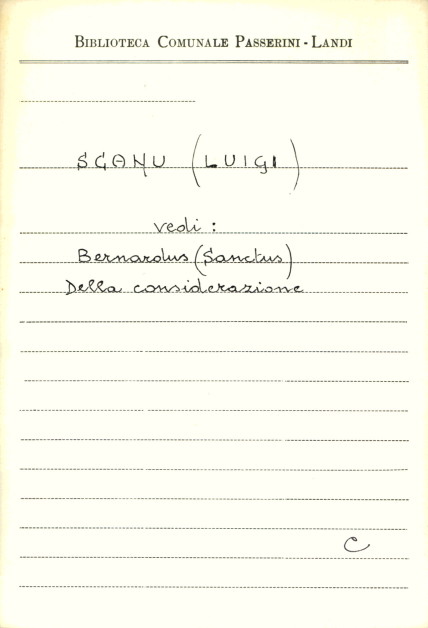 BIBLIOTECA COMUNALE PASSERINI - LANDI
SCANU (LUIGI)
vedi :
Bernardus (Sanctus)
Della considerazione
C